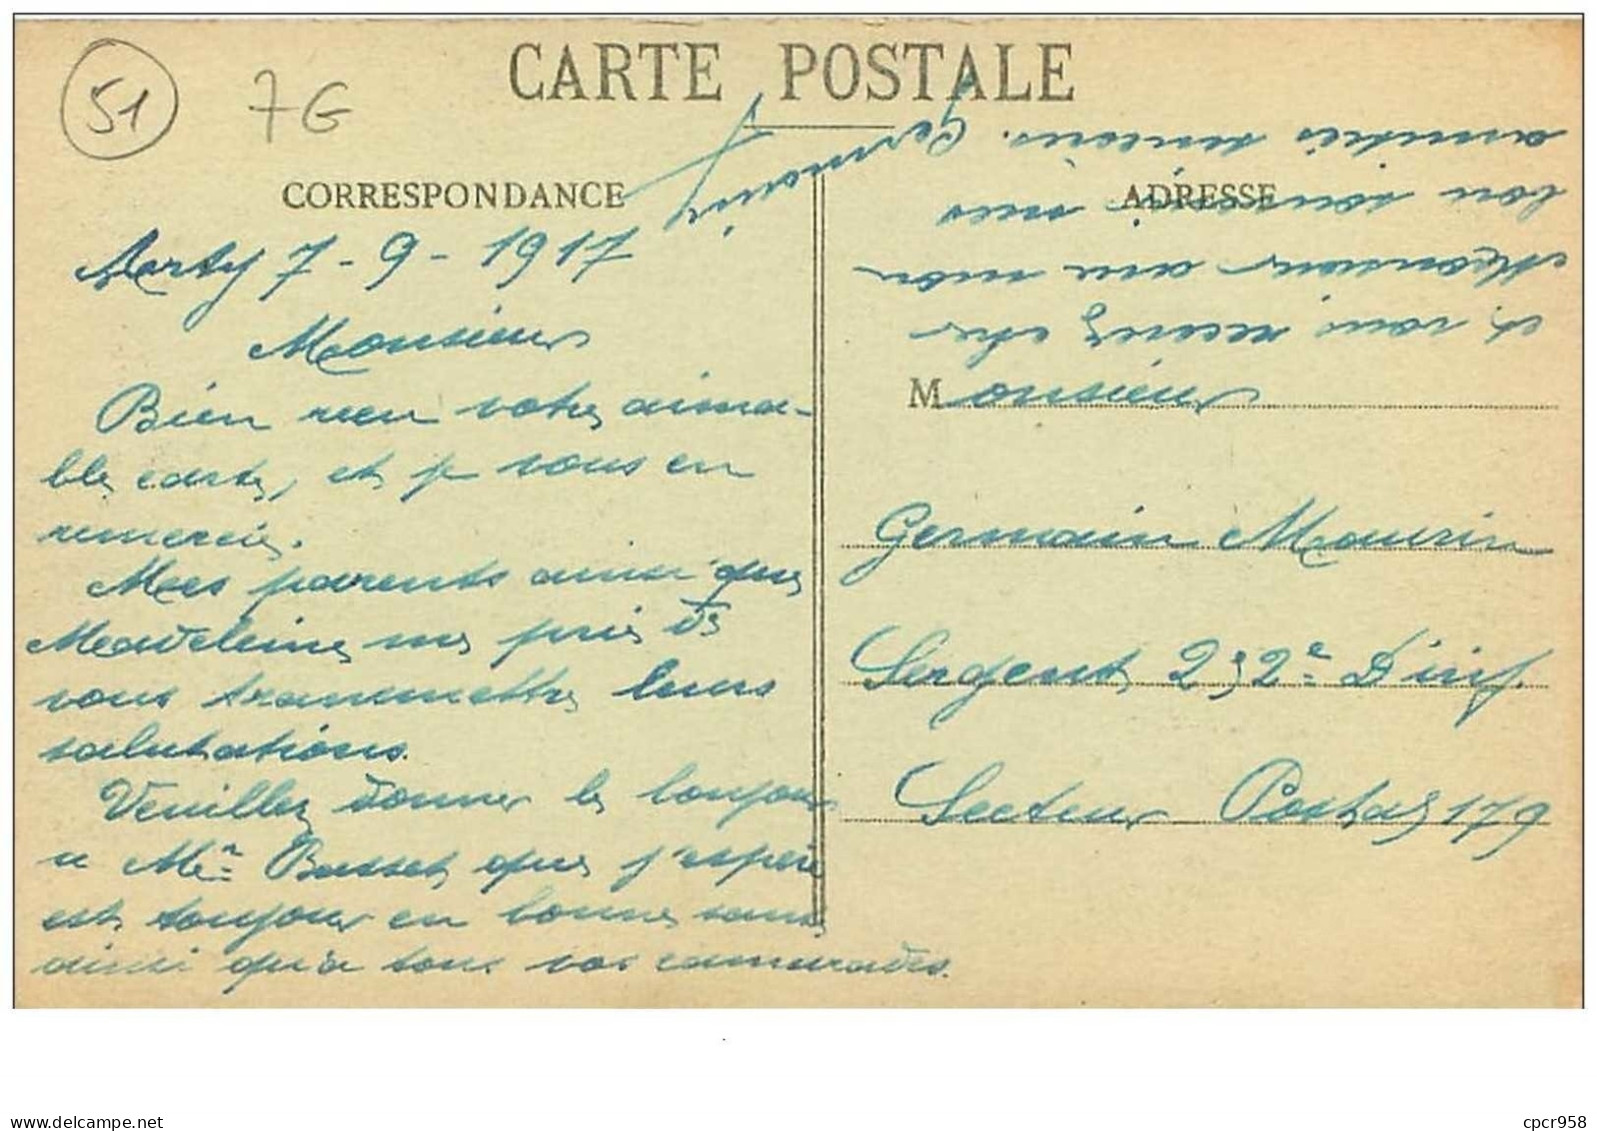 51
7G
CARTE POSTALE
CORRESPONDANCE
ADRESSE
7-9-1917
Monsieur
Bien reçu votre aima-
ble carte, et je vous en
remercie.
Mes parents ainsi que
Madeleine me prie de
vous transmettre leurs
salutations.
Veuillez donner le bonjour
a Mr Basset que j'espère
est toujours en bonne santé
ainsi qu'a tous vos camarades.
et vous recevez cher
Monsieur ami mon
bon souvenir mes
amitiés sincères. Germain
Monsieur
Germain Maurin
Sergent 252e D'inf.
Secteur Postal 179
delcampe.net
cpcr958